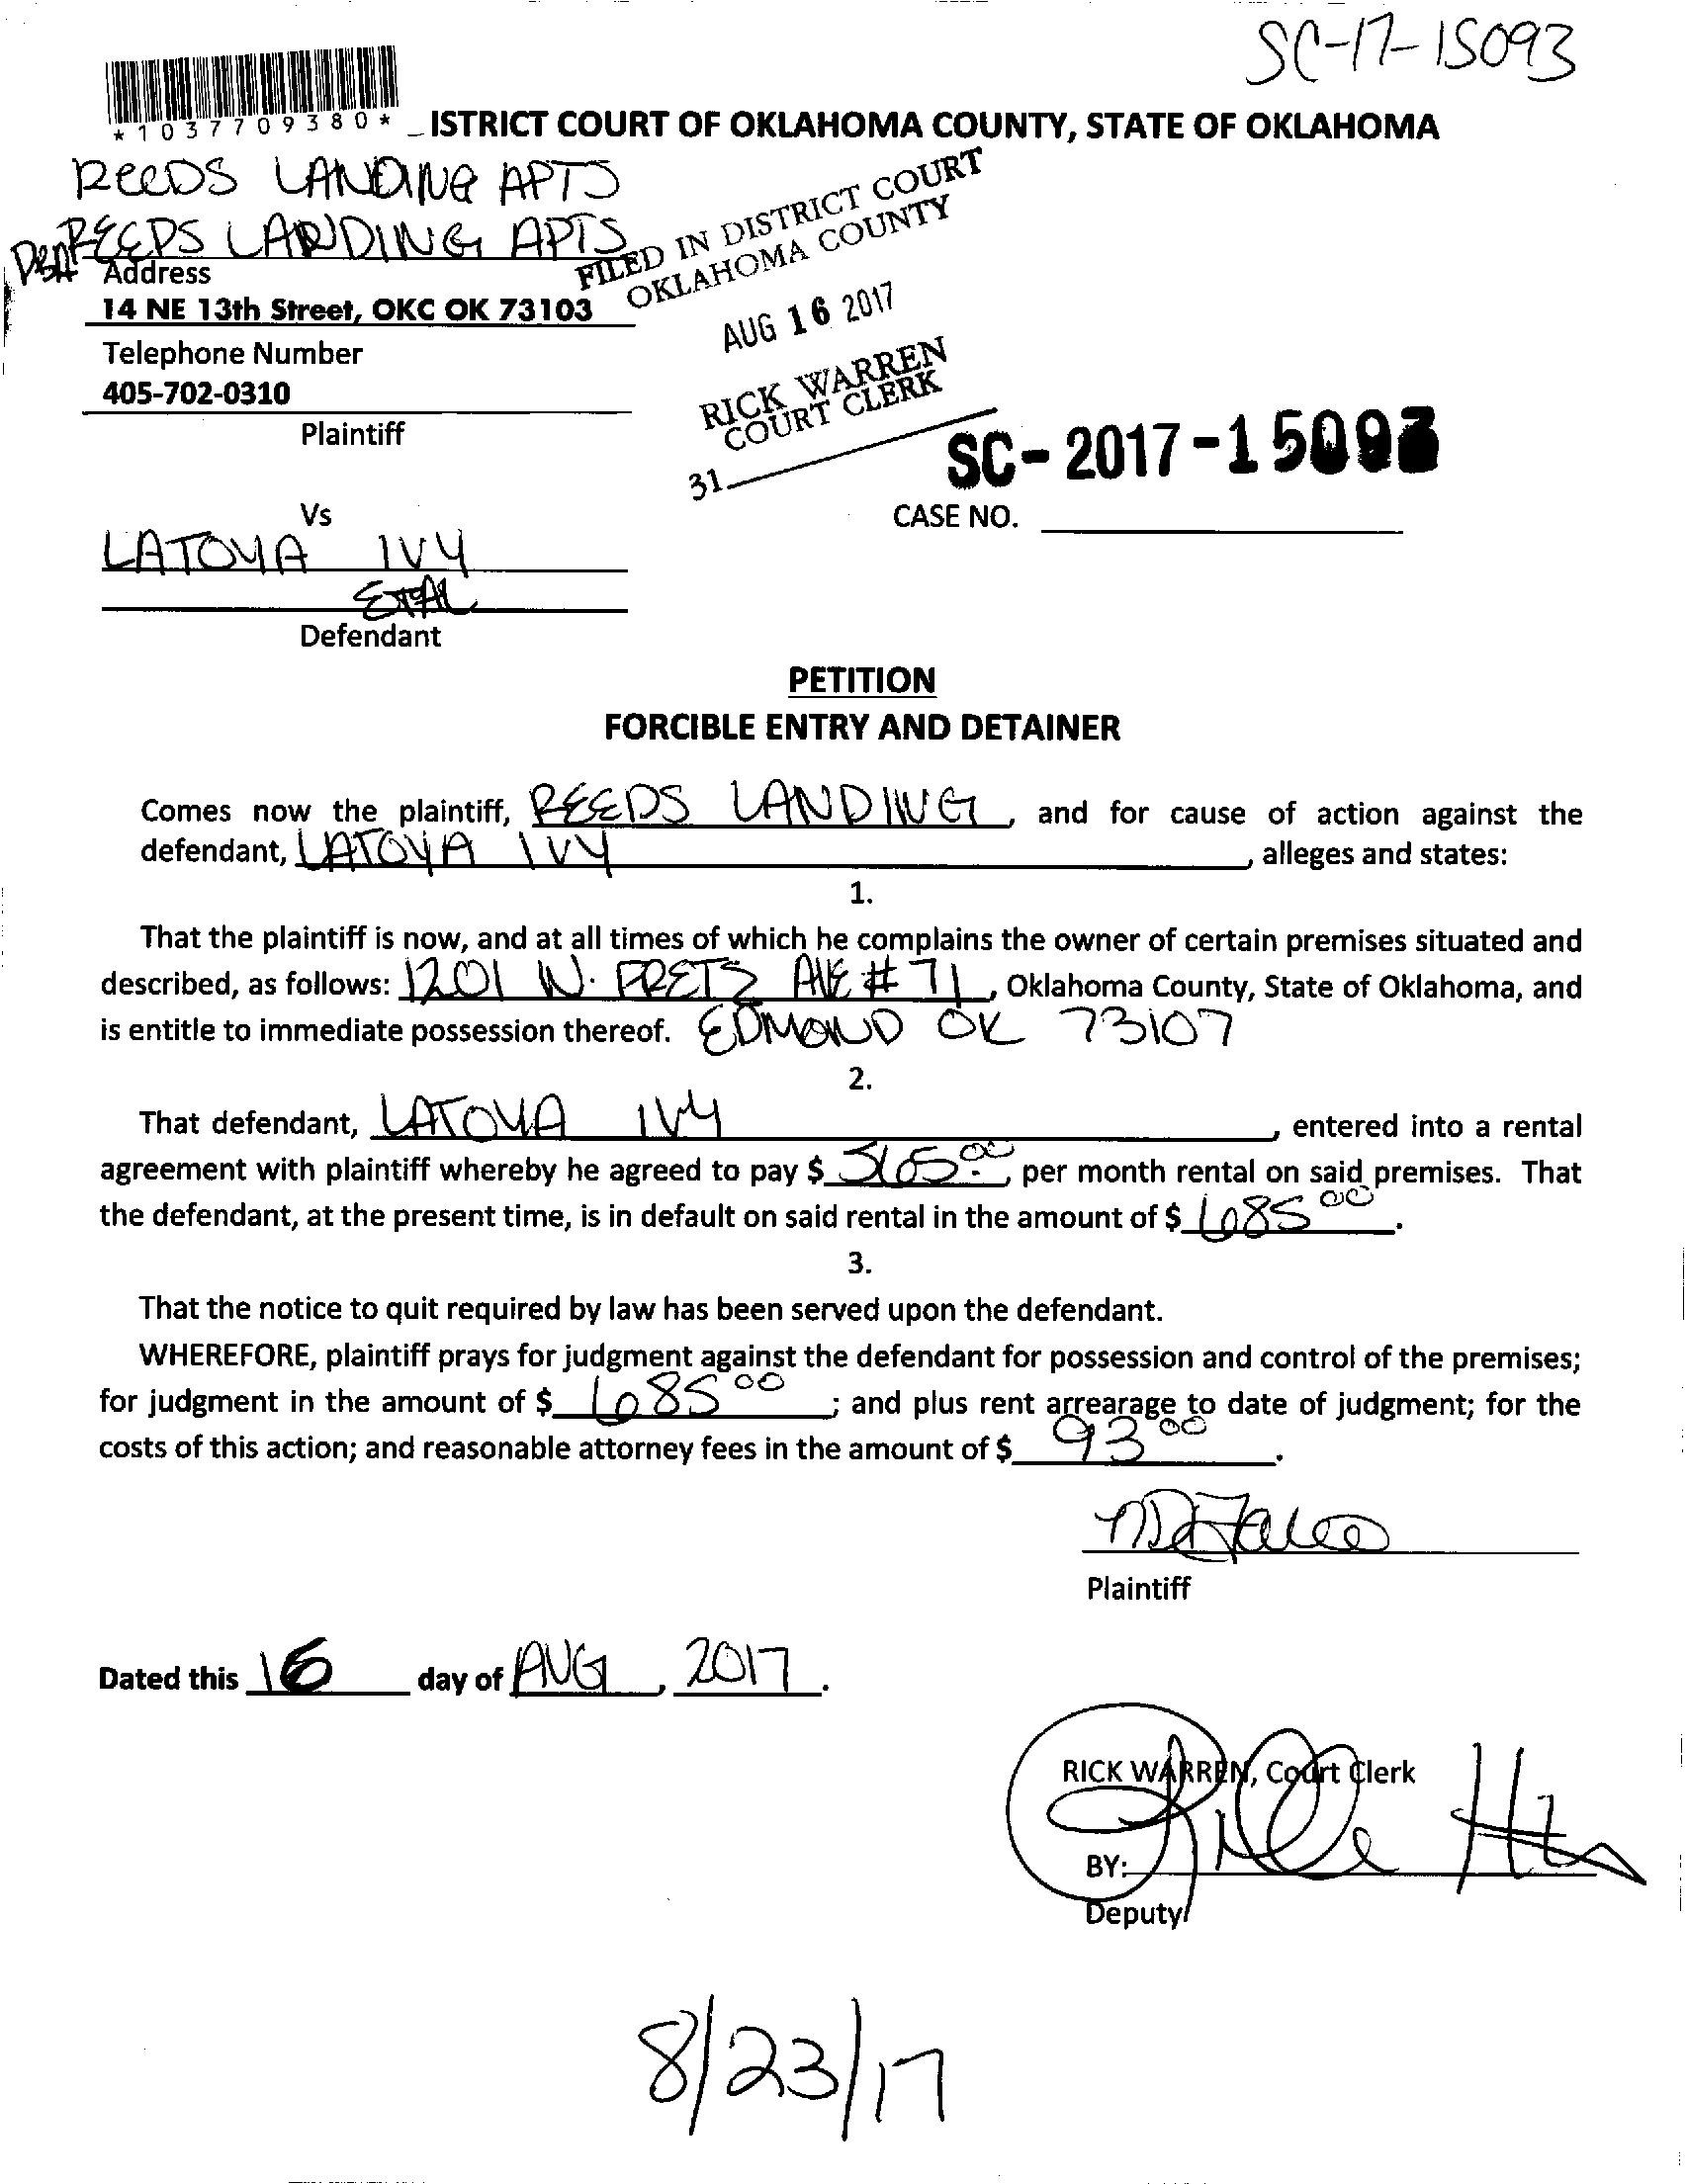 SC-17-15093
*1037709380*
ISTRICT COURT OF OKLAHOMA COUNTY, STATE OF OKLAHOMA
REEDS LANDING APTS
DBA REEDS LANDING APTS
FILED IN DISTRICT COURT
OKLAHOMA COUNTY
Address
14 NE 13th Street, OKC OK 73103
AUG 16 2017
Telephone Number
405-702-0310
RICK WARREN
COURT CLERK
Plaintiff
31
SC-2017-15093
Vs
CASE NO.
LATOYA IVY
ETAL
Defendant
PETITION
FORCIBLE ENTRY AND DETAINER
Comes now the plaintiff, REEDS LANDING, and for cause of action against the
defendant, LATOYA IVY, alleges and states:
1.
That the plaintiff is now, and at all times of which he complains the owner of certain premises situated and
described, as follows: 1201 N. FRETZ AVE #71, Oklahoma County, State of Oklahoma, and
is entitle to immediate possession thereof. EDMOND OK 73107
2.
That defendant, LATOYA IVY, entered into a rental
agreement with plaintiff whereby he agreed to pay $ 565.00, per month rental on said premises. That
the defendant, at the present time, is in default on said rental in the amount of $ 685 00.
3.
That the notice to quit required by law has been served upon the defendant.
WHEREFORE, plaintiff prays for judgment against the defendant for possession and control of the premises;
for judgment in the amount of $ 685 00; and plus rent arrearage to date of judgment; for the
costs of this action; and reasonable attorney fees in the amount of $ 93 00.
Plaintiff
Dated this 16 day of AUG, 2017.
RICK WARREN, Court Clerk
BY:
Deputy
8/23/17